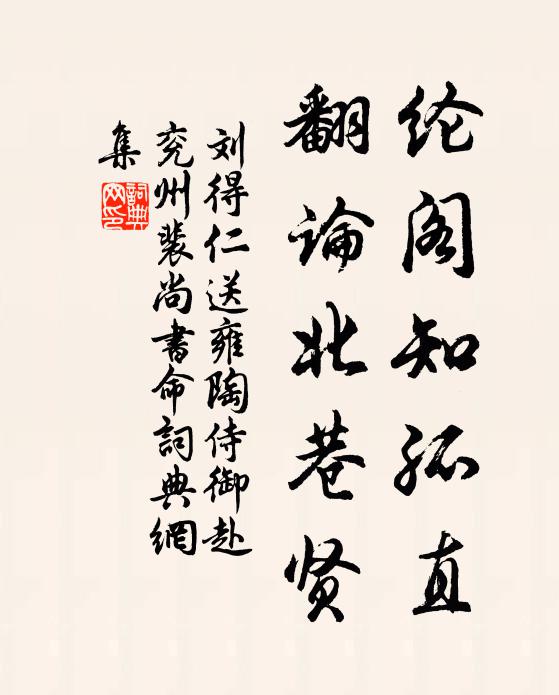 纶阁知孤直
翻論北巷贤
刘得仁送雍陶侍御赴
兖州裴尚書命詞典網
集
詞典网印